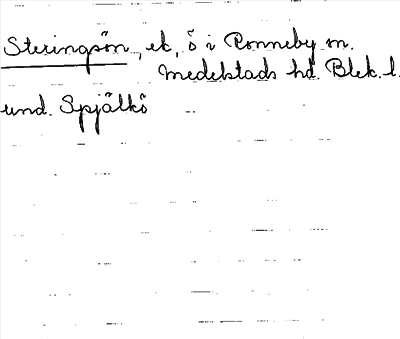 Steringsön, ek, ö i Ronneby m.
Medelstads hd. Blek. l.
und. Spjälkö